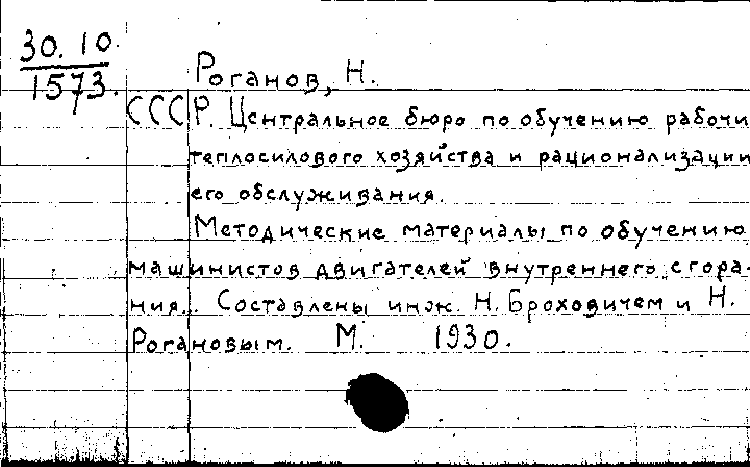 30.10.
1573.
Роганов, Н.
СССР. Центральное бюро по обучению рабочи
теплосилового хозяйства и рационализации
его обслуживания.
Методические материалы по обучению
машинистов двигателей внутреннего сгора-
ния... Составлены инж. Н. Броховичем и Н.
Рогановым. М. 1930.